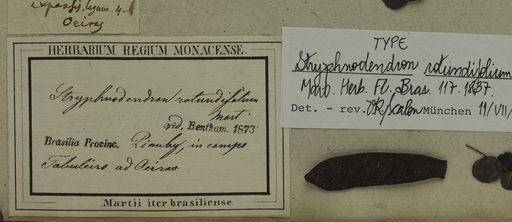 Oeiras
HERBARIUM REGIUM MONACENSE.
Stryphnodendron rotundifolium
Mart
vid. Bentham. 1873
Brasilia Provinc. Piauhy, in campo
Tabuleiro ad Oeiras
Martii iter brasiliense.
TYPE
Stryphnodendron rotundifolium
Mart. Herb. Fl. Bras. 117. 1837.
Det. - rev. VRScalon München 11/VII/